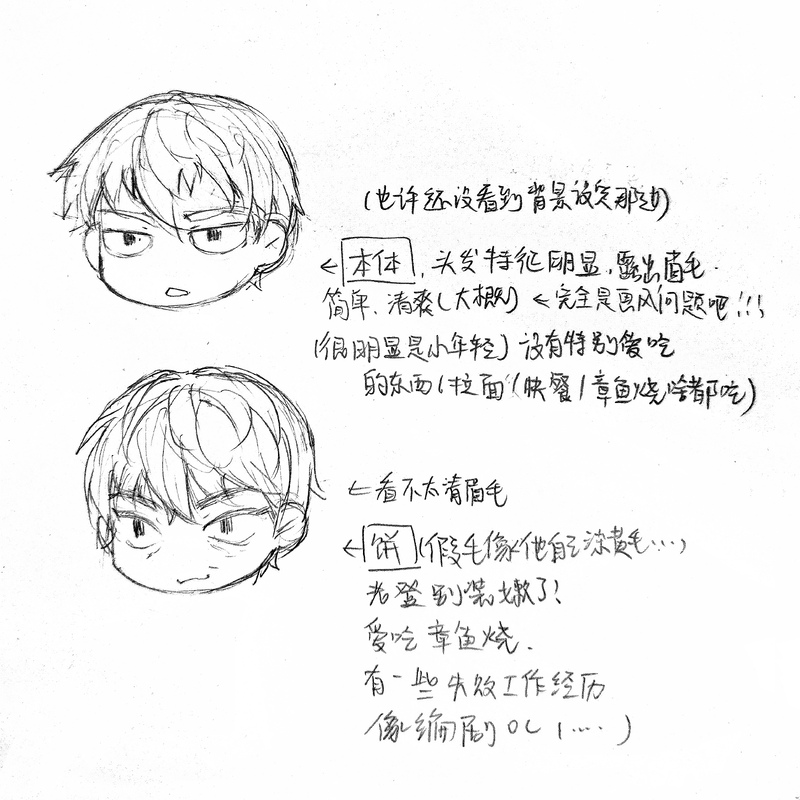 (也许还没看到背景设定那边)
←本体,头发特征明显,露出眉毛.
简单、清爽(大概) ←完全是画风问题吧!!!
(很明显是小年轻) 没有特别爱吃
的东西(拉面/快餐/章鱼烧啥都吃)
←看不太清眉毛
←饼(假毛像他自己染黄毛....)
老登别装嫩了!
爱吃章鱼烧.
有一些失败工作经历
像编剧OC(....)